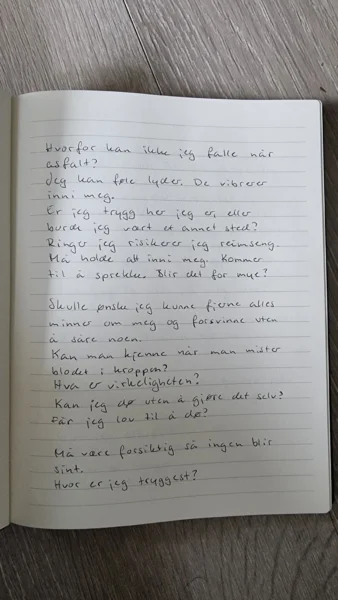 Hvorfor kan ikke jeg falle når
asfalt?
Jeg kan føle lyder. De vibrerer
inni meg.
Er jeg trygg her jeg er, eller
burde jeg vært et annet sted?
Ringer jeg risikerer jeg reimseng.
Må holde alt inni meg. Kommer
til å sprekke. Blir det for mye?
Skulle ønske jeg kunne fjerne alles
minner om meg og forsvinne uten
å såre noen.
Kan man kjenne når man mister
blodet i kroppen?
Hva er virkeligheten?
Kan jeg dø uten å gjøre det selv?
Får jeg lov til å dø?
Må være forsiktig så ingen blir
sint.
Hvor er jeg tryggest?